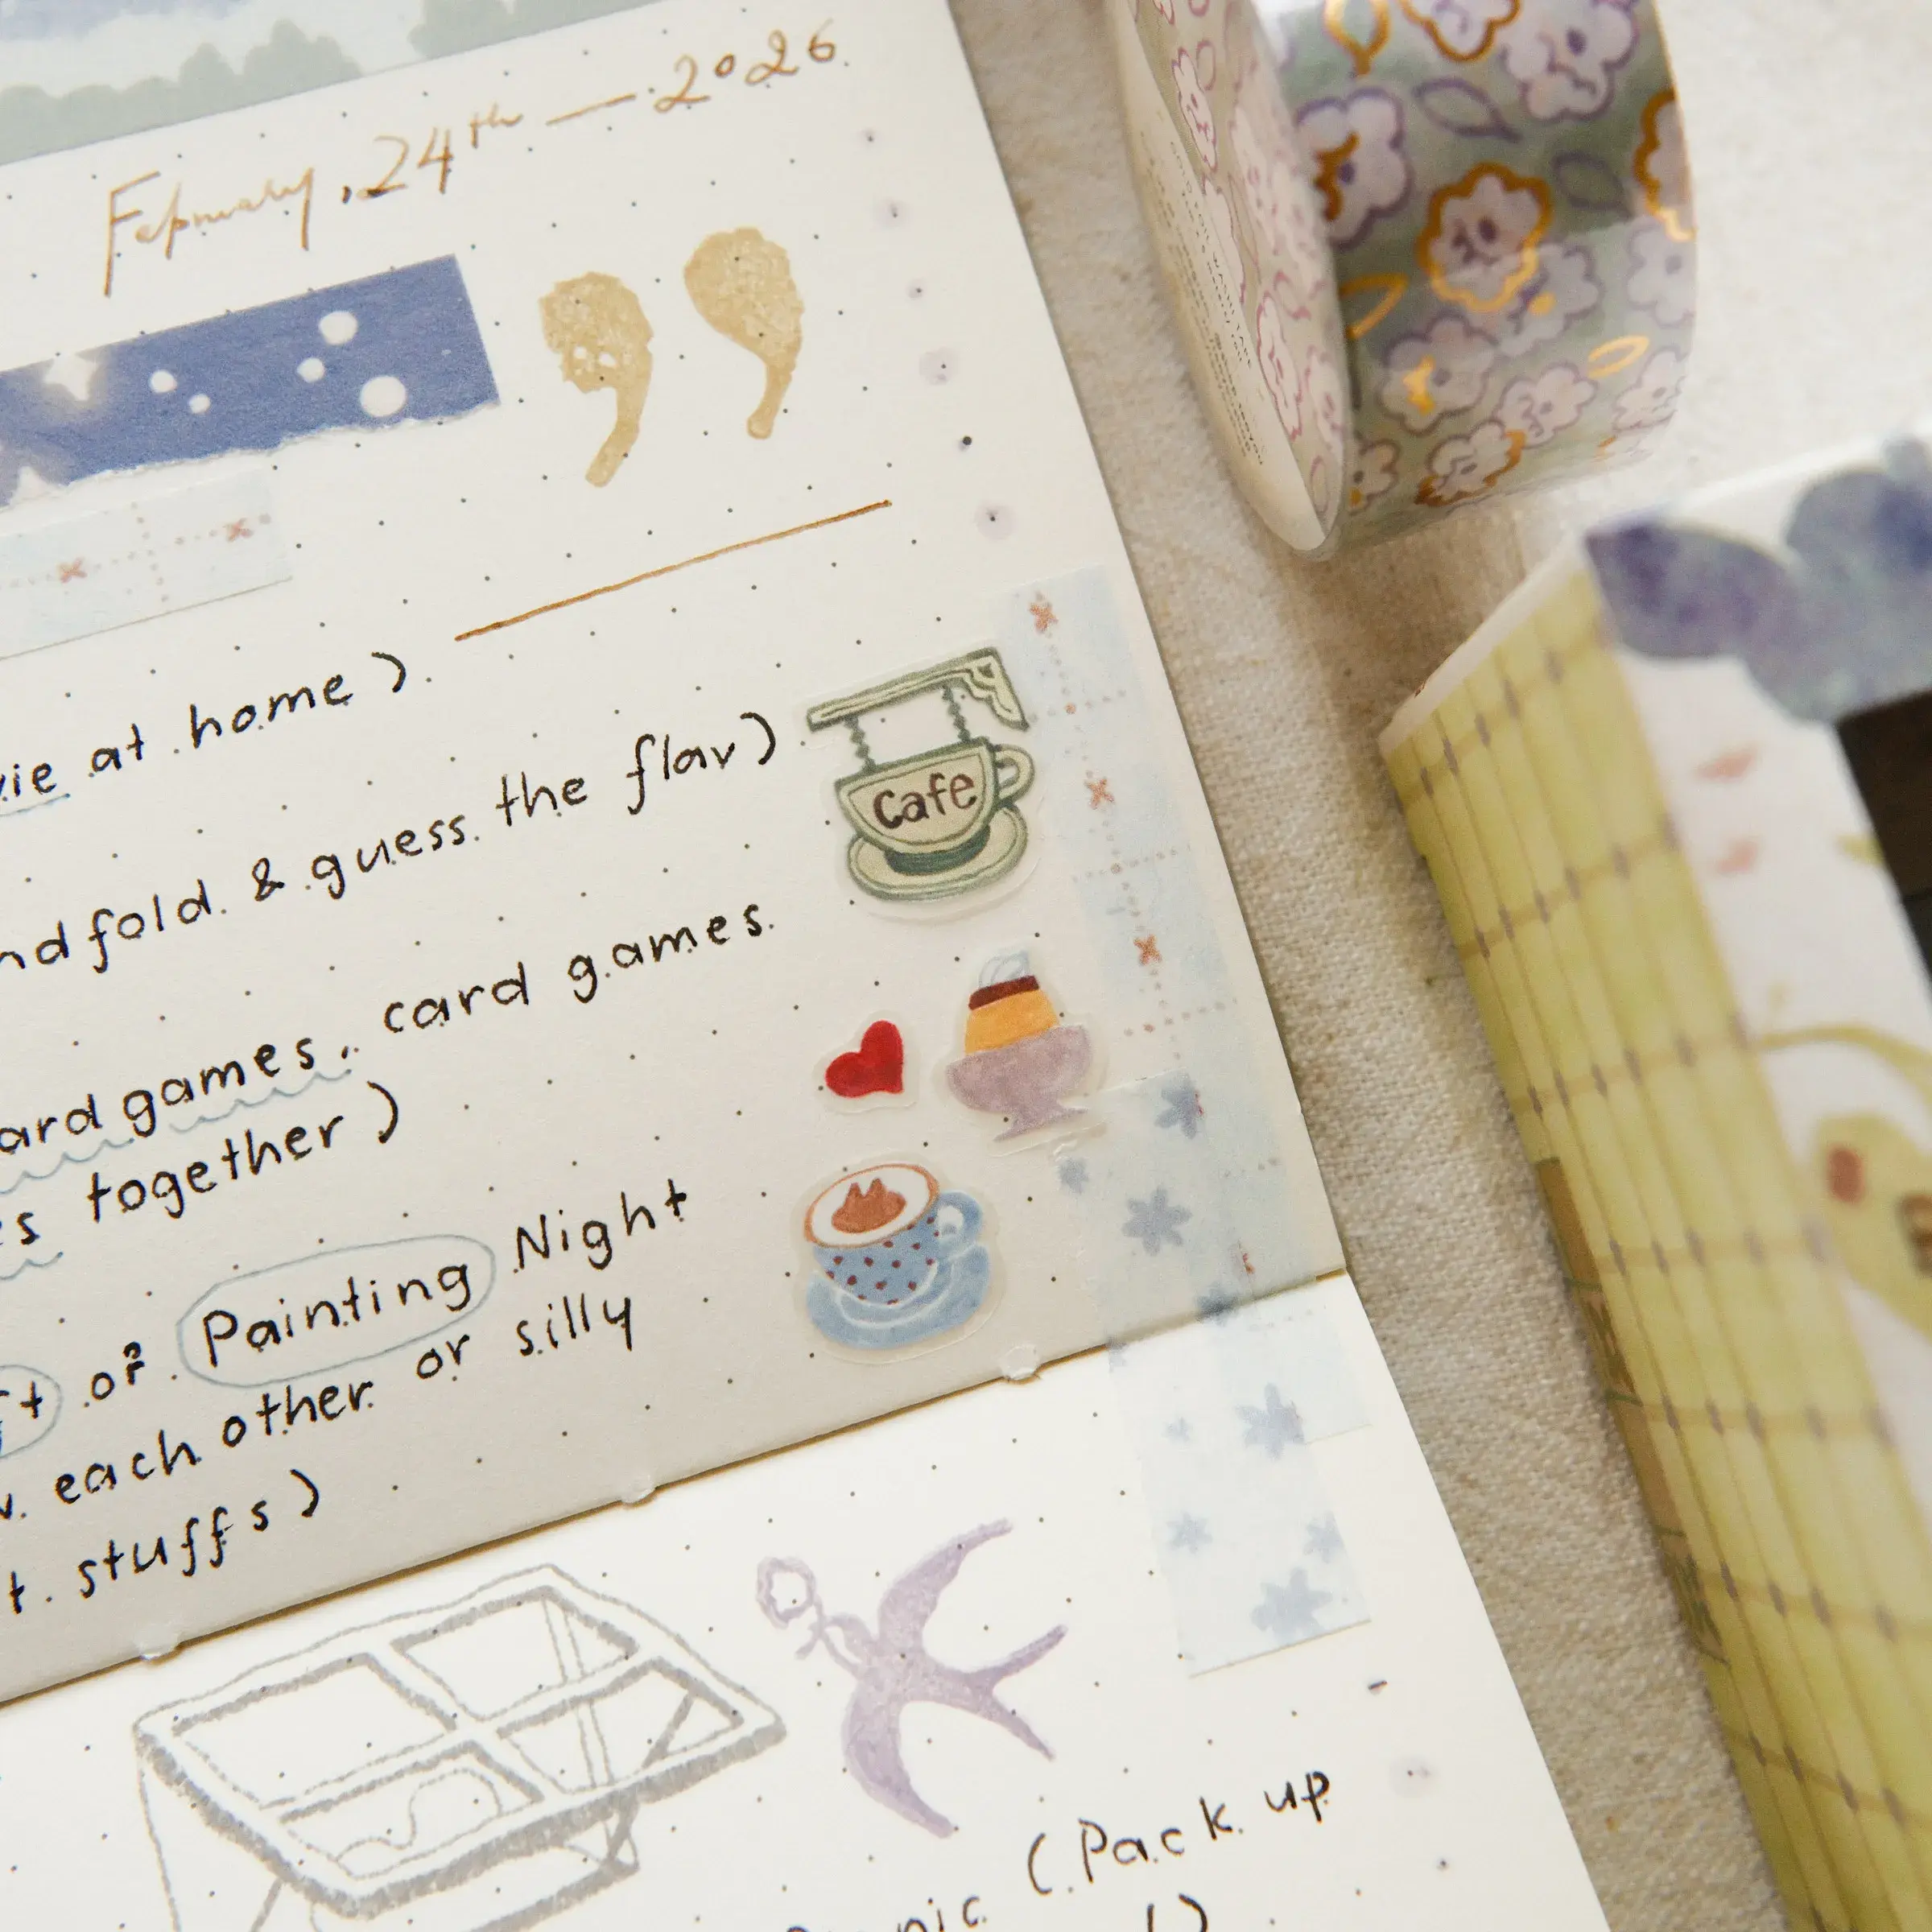 February, 24th — 2026
at home).
fold & guess the flav)
Cafe
games, card games.
together)
of Painting Night
each other or silly
stuffs)
(Pack up